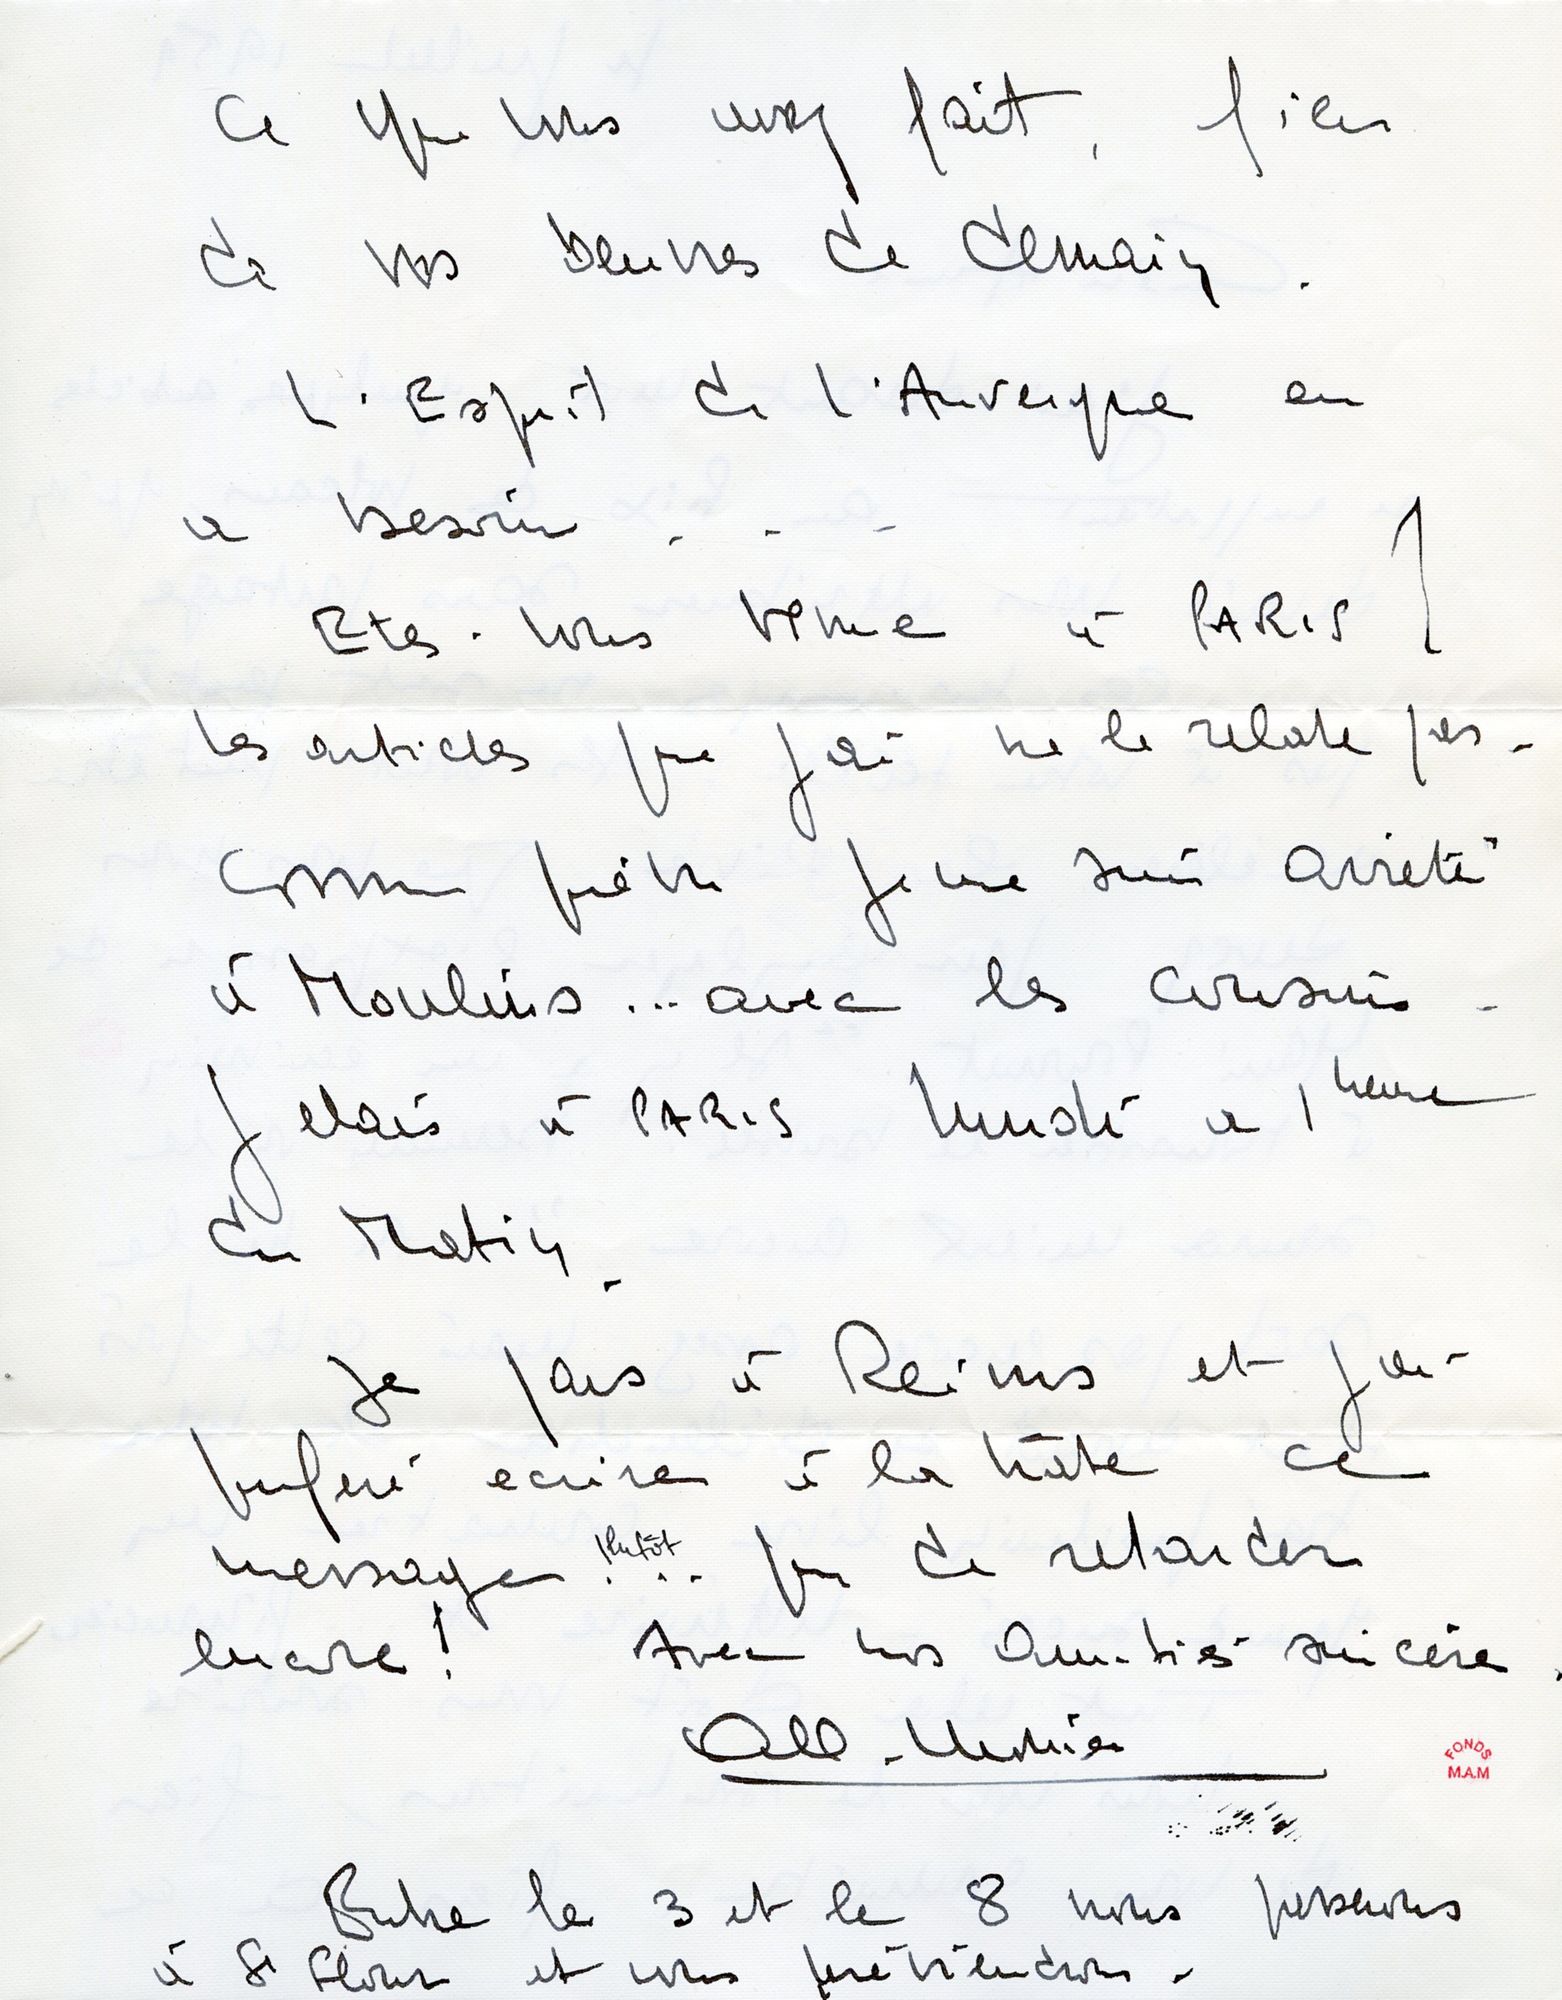 Ce que vous avez fait, fier
de vos oeuvres de demain.
L'Esprit de l'Auvergne en
a besoin . . .
Etes-vous venue à PARIS ?
Les articles que j'ai ne le relate pas.
Comme prévu je me suis arrêté
à Moulins... avec les cousins.
J'étais à PARIS lundi à 1 heure
du Matin.
Je pars à Reims et j'ai
préféré écrire à la hâte ce
message plutôt ... que de retarder
encore ! Avec nos amitiés sincère.
Entre le 3 et le 8 nous passerons
à St Flour et vous préviendrons.
FONDS
M.A.M